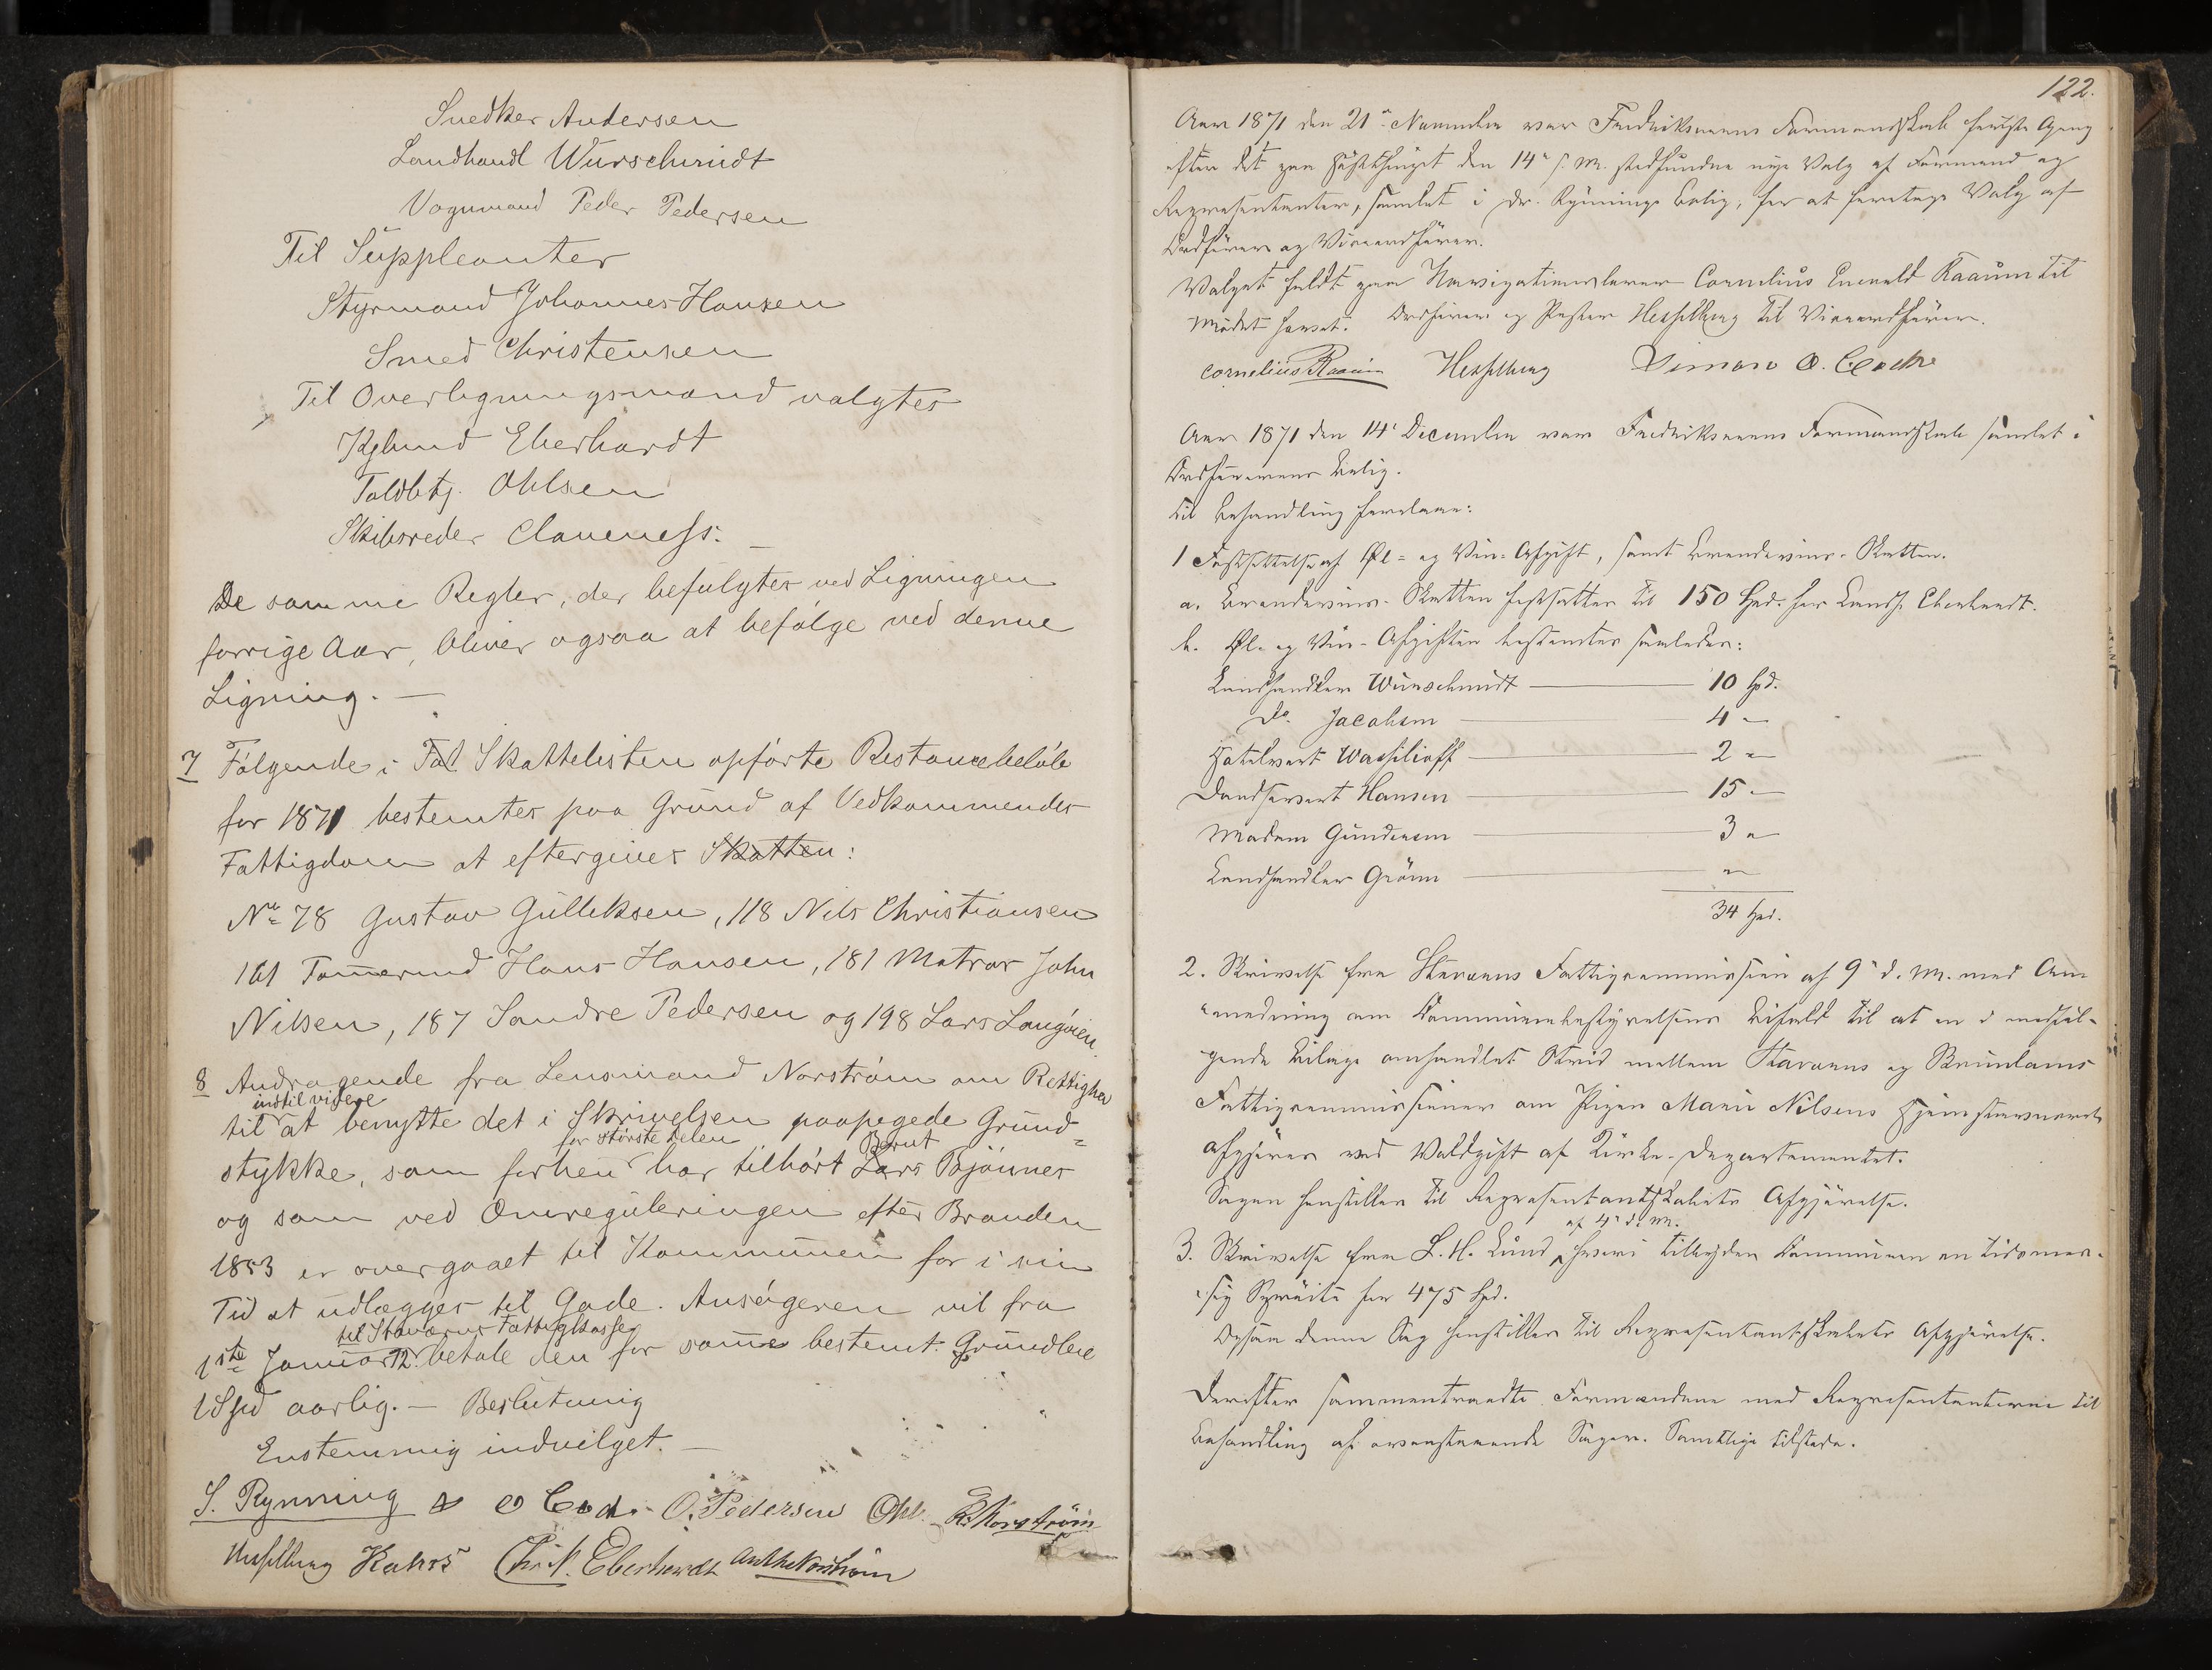 Snedker Andersen
Landhandl Wurschmidt
Vognmand Peder Pedersen
Til Suppleanter
Styrmand Johannes Hansen
Smed Christensen
Til Overligningsmænd valgtes
Kjøbmd Eberhardt
Toldbtj. Ohlsen
Skibsreder Claueness. —
De samme Regler, der befulgtes ved Ligningen
forrige Aar, bliver ogsaa at befølge ved denne
Ligning. —
7 Følgende i Skattelisten opførte Restancebeløb
for 1871 bestemtes paa Grund af Vedkommendes
Fattigdom at eftergives Skatten:
No 78 Gustav Gulliksen, 118 Nils Christiansen
161 Tømermd Hans Hansen, 181 Matros John
Nilsen, 187 Sondre Pedersen og 198 Lars Langøien.
8 Andragende fra Lensmand Norstrøm om Rettighed
indtil videre
til at benytte det i Skrivelsen paapegede Grund=
for største Delen Bernt
stykke, som forhen har tilhørt Lars Bjønnes
og som ved Omreguleringen efter Branden
1853 er overgaaet til Kommunen for i sin
Tid at udlægges til Gade. Ansøgeren vil fra
til Staværns Fattigkasse
1ste Januar 72 betale den for same bestemt Grundleie
1 Spd aarlig. — Beslutning
Enstemmig indvilget. —
S. Rynning O. Pedersen Ohl. Norstrøm
Hesselberg Kahrs Chr. F. Eberhardt Anth Norström
122.
Aar 1871 den 21de November var Fredriksværns Formandskab første Gang
efter det paa Husthinget den 14de s. M. stedfundne nye Valg af Formænd og
Repræsentanter, samlet i Dr. Rynnings Bolig, for at foretage Valg af
Ordfører og Viceordfører.
Valget faldt paa Navigationslærer Cornelius Raaum til
Mødet hævet. Ordfører og Pastor Hesselberg til Viceordfører.
Cornelius Raaum Hesselberg Simon O.
Aar 1871 den 14de December var Fredriksværns Formandskab samlet i
Ordførerens Bolig.
Til Behandling forelaae:
1 Fastsættelse af Øl- og Vin-Afgift, samt Brændevins-Skatten.
a. Brændevins-Skatten fastsattes til 150 Spd. for Landh. Eberhardt.
b. Øl- og Vin-Afgiften bestemtes saaledes:
Landhandler Wurschmidt — 10 Spd.
Do. Jacobsen — 4 "
Hotelvert Wassilioff — 2 "
Dandsevert Hansen — 15 "
Madam Gundersen — 3 "
Landhandler Grönn — "
34 Spd.
2. Skrivelse fra Staværns Fattigcommission af 9de d. M. med An-
modning om Communebestyrelsens Bifald til at en i medføl-
gende Bilage omhandlet Strid mellem Staværns og Brunlanes
Fattigcommissioner om Pigen Maren Nilsens Hjemstavnsret
afgjøres ved Voldgift af Kirke-Departementet.
Sagen henstilles til Repræsentantskabets Afgjørelse.
af 4de d. M.
3. Skrivelse fra L. H. Lund hvori tilbydes Communen en tidsmæs-
sig Sprøite for 475 Spd.
Ogsaa denne Sag henstilles til Repræsentantskabets Afgjørelse.
Derefter sammentraadte Formændene med Repræsentanterne til
Behandling af ovenstaaende Sager. Samtlige tilstede.